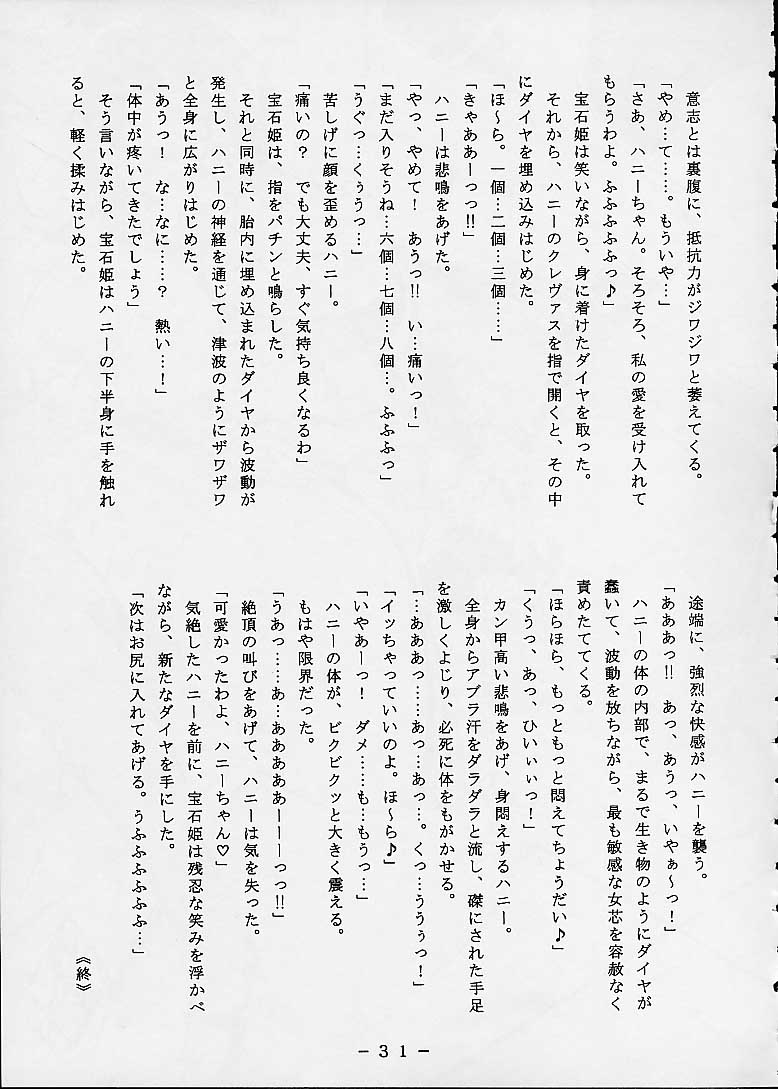 意志とは裏腹に、抵抗力がジワジワと萎えてくる。
「やめ…て……。もういや…」
「さあ、ハニーちゃん。そろそろ、私の愛を受け入れて
もらうわよ。ふふふふふっ♪」
宝石姫は笑いながら、身に着けたダイヤを取った。
それから、ハニーのクレヴァスを指で開くと、その中
にダイヤを埋め込みはじめた。
「ほ～ら。一個…二個…三個……」
「きゃああーっっ!!」
ハニーは悲鳴をあげた。
「やっ、やめて！　あうっ!!　い…痛いっ！」
「まだ入りそうね…六個…七個…八個…。ふふふっ」
「うぐっ…くぅうっ…」
苦しげに顔を歪めるハニー。
「痛いの？　でも大丈夫、すぐ気持ち良くなるわ」
宝石姫は、指をパチンと鳴らした。
それと同時に、胎内に埋め込まれたダイヤから波動が
発生し、ハニーの神経を通じて、津波のようにザワザワ
と全身に広がりはじめた。
「あうっ！　な…なに……？　熱い…！」
「体中が疼いてきたでしょう」
そう言いながら、宝石姫はハニーの下半身に手を触れ
ると、軽く揉みはじめた。
途端に、強烈な快感がハニーを襲う。
「あああっ!!　あっ、あうっ、いやぁ～っ！」
ハニーの体の内部で、まるで生き物のようにダイヤが
蠢いて、波動を放ちながら、最も敏感な女芯を容赦なく
責めたててくる。
「ほらほら、もっともっと悶えてちょうだい♪」
「くうっ、あっ、ひいぃぃっ！」
カン甲高い悲鳴をあげ、身悶えするハニー。
全身からアブラ汗をダラダラと流し、磔にされた手足
を激しくよじり、必死に体をもがかせる。
「…あああっ……あっ…あっ…。くっ…うううっ！」
「イッちゃっていいのよ。ほ～ら♪」
「いやあーっ！　ダメ……も…もうっ…」
ハニーの体が、ビクビクッと大きく震える。
もはや限界だった。
「うあっ……あ…あああああーーーっっ!!」
絶頂の叫びをあげて、ハニーは気を失った。
「可愛かったわよ、ハニーちゃん♡」
気絶したハニーを前に、宝石姫は残忍な笑みを浮かべ
ながら、新たなダイヤを手にした。
「次はお尻に入れてあげる。うふふふふふふ…」
《終》
－３１－